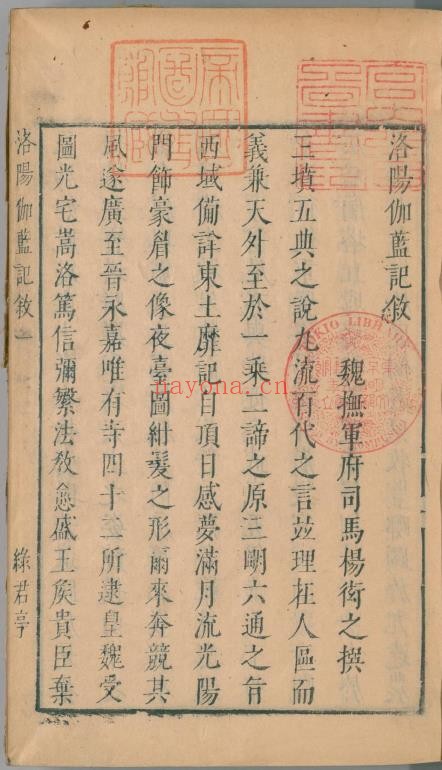 洛陽伽藍記敘
魏撫軍府司馬楊衒之撰
三墳五典之說九流百代之言竝理在人區而
義兼天外至於一乘二諦之原三明六通之旨
西域備詳東土靡記自頂日感夢滿月流光陽
門飾豪眉之像夜臺圖紺髮之形爾來奔競其
風遂廣至晉永嘉唯有寺四十二所逮皇魏受
圖光宅嵩洛篤信彌繁法教愈盛王矦貴臣棄
洛陽伽藍記敘 一
綠君亭
TOKIO LIBRARY
nayona.cn